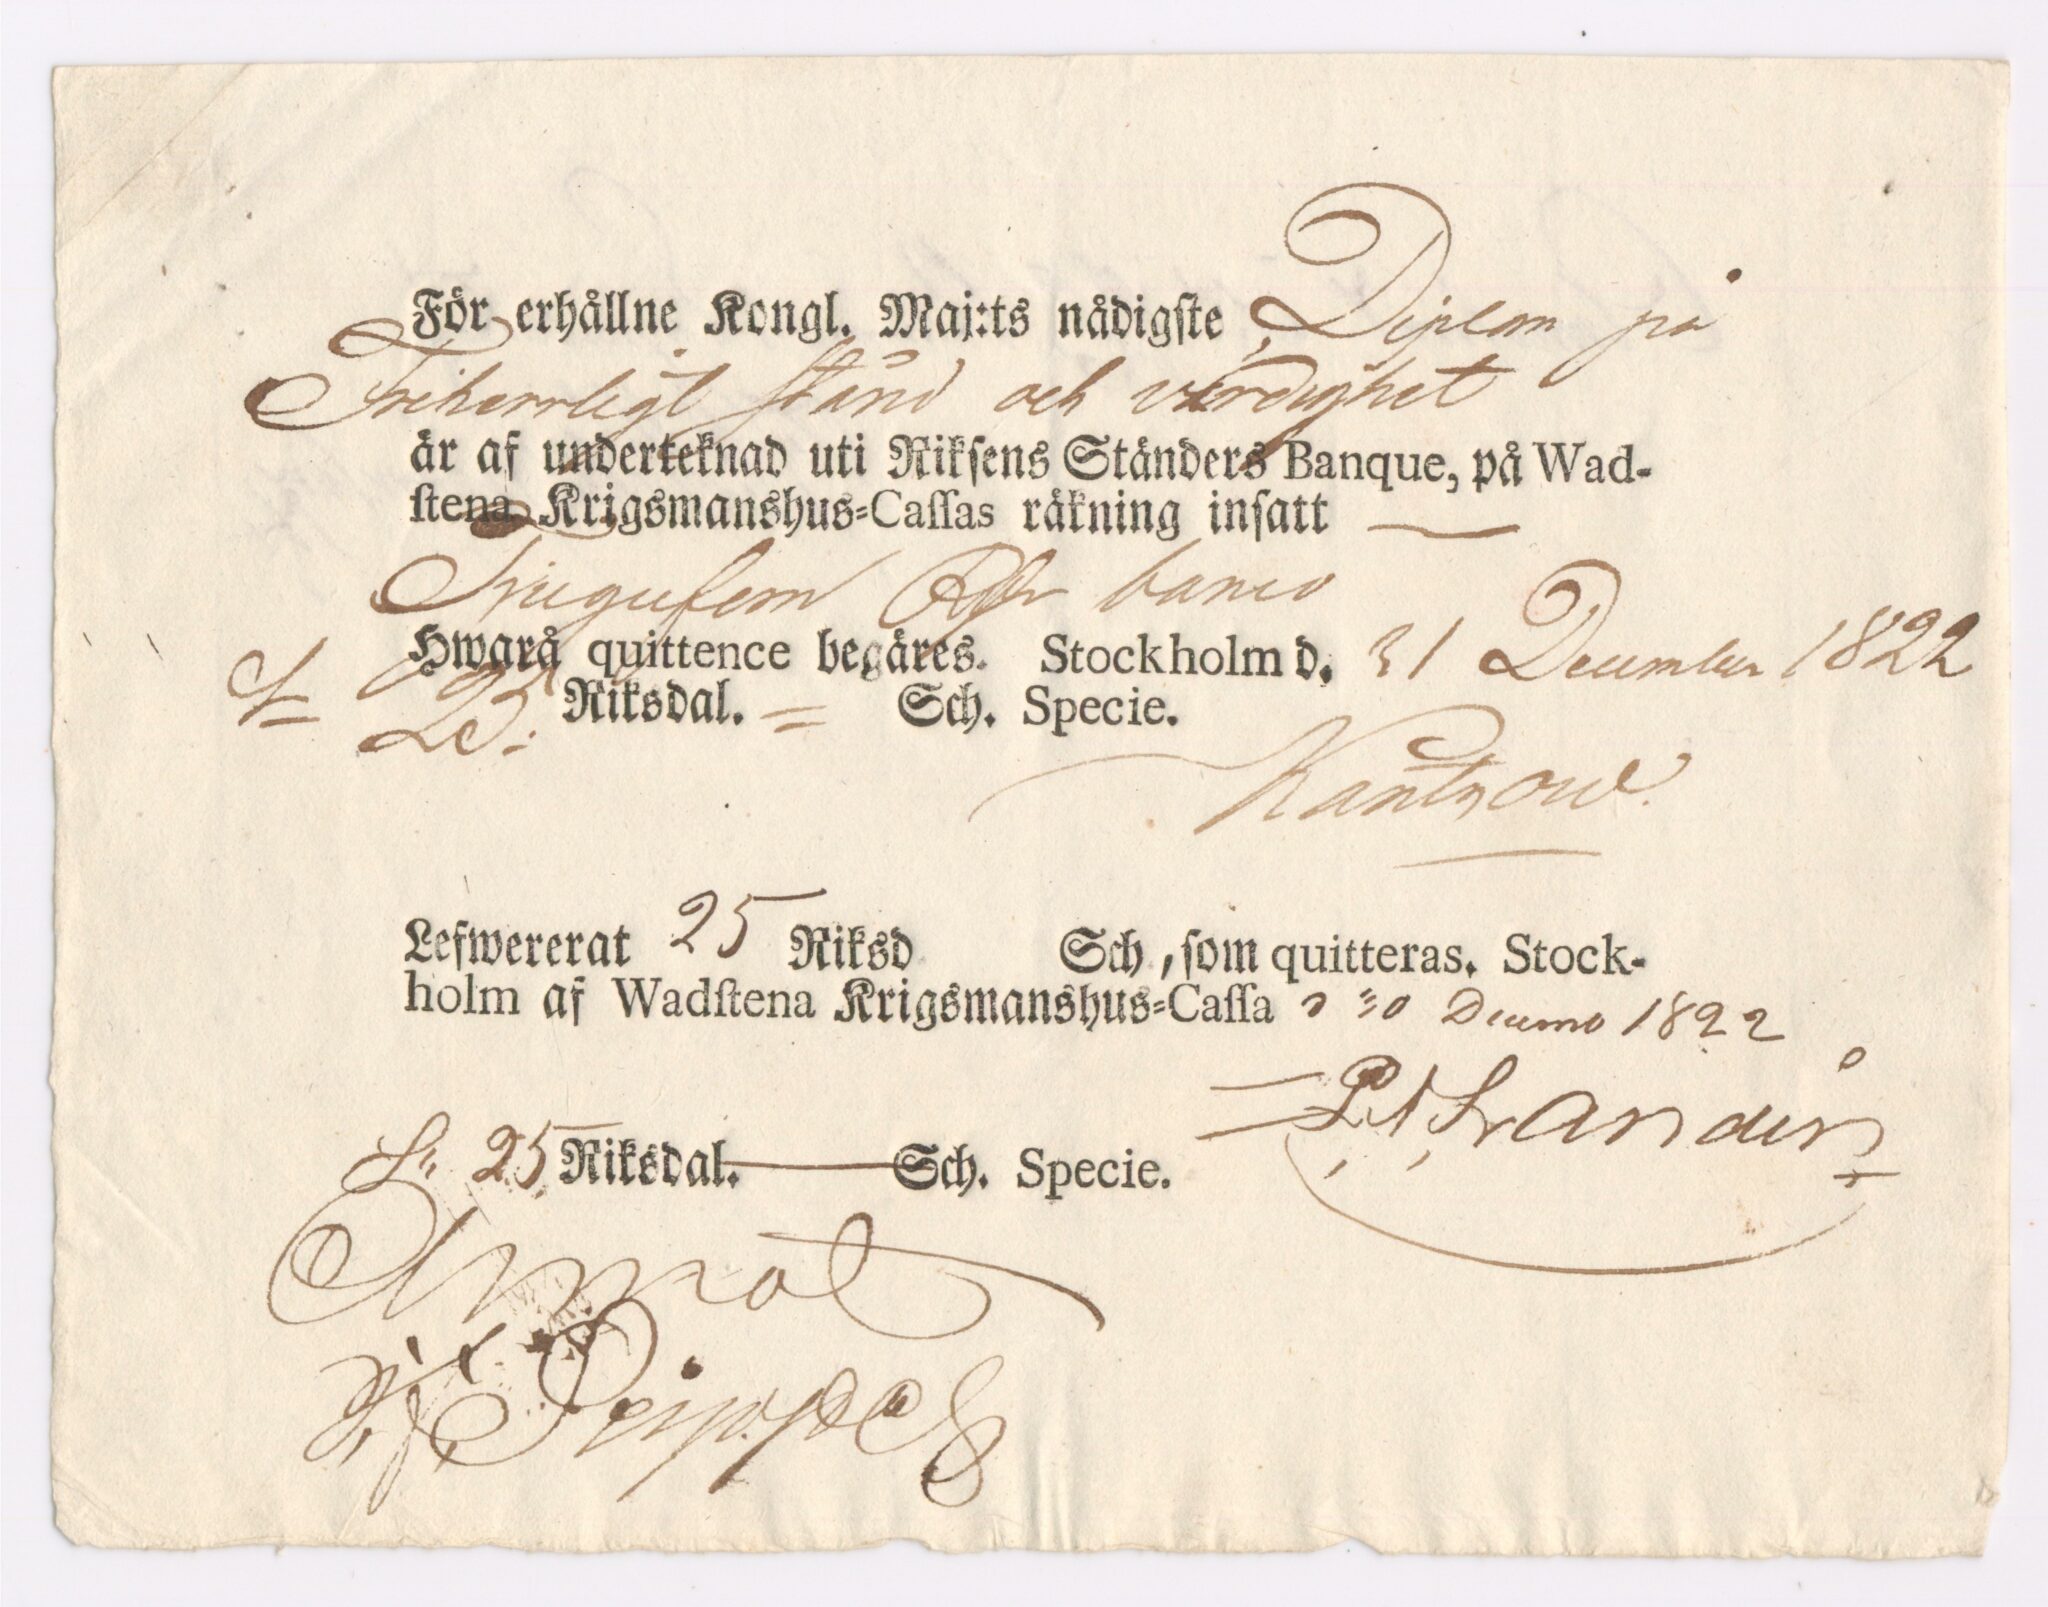 För erhållne Kongl. Maj:ts nådigste Diplom på
Friherrligt stånd och värdighet
är af underteknad uti Riksens Ständers Banque, på Wad-
stena Krigsmanshus-Cassas räkning insatt —
Tjugufem Rdr banco
Hwarå quittence begäres. Stockholm d. 31 December 1822
25. Riksdal. = Sch. Specie.
Kantzow.
Lefwererat 25 Riksd Sch, som quitteras. Stock-
holm af Wadstena Krigsmanshus-Cassa d 30 Decemb 1822
25 Riksdal. — Sch. Specie.